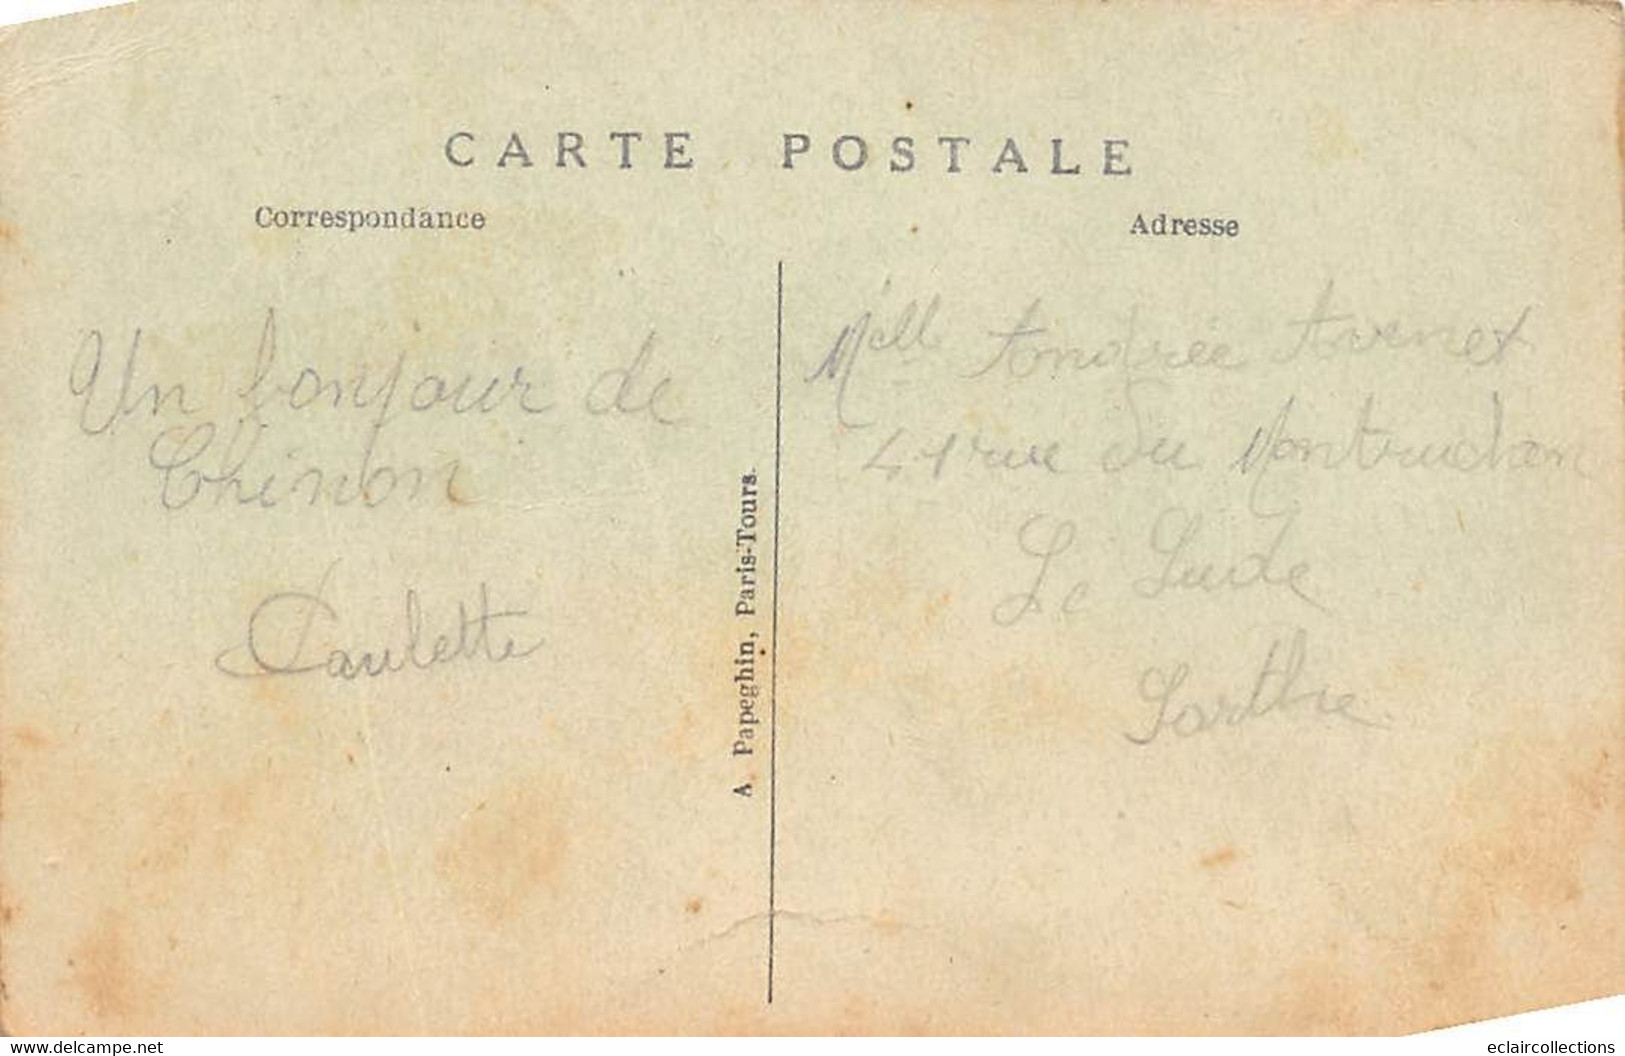 CARTE POSTALE
Correspondance
Adresse
Un bonjour de
Chinon
Paulette
A. Papeghin, Paris-Tours.
Melle Andrée Avenet
41 rue du
Le Lude
Sarthe
www.delcampe.net
eclaircollections